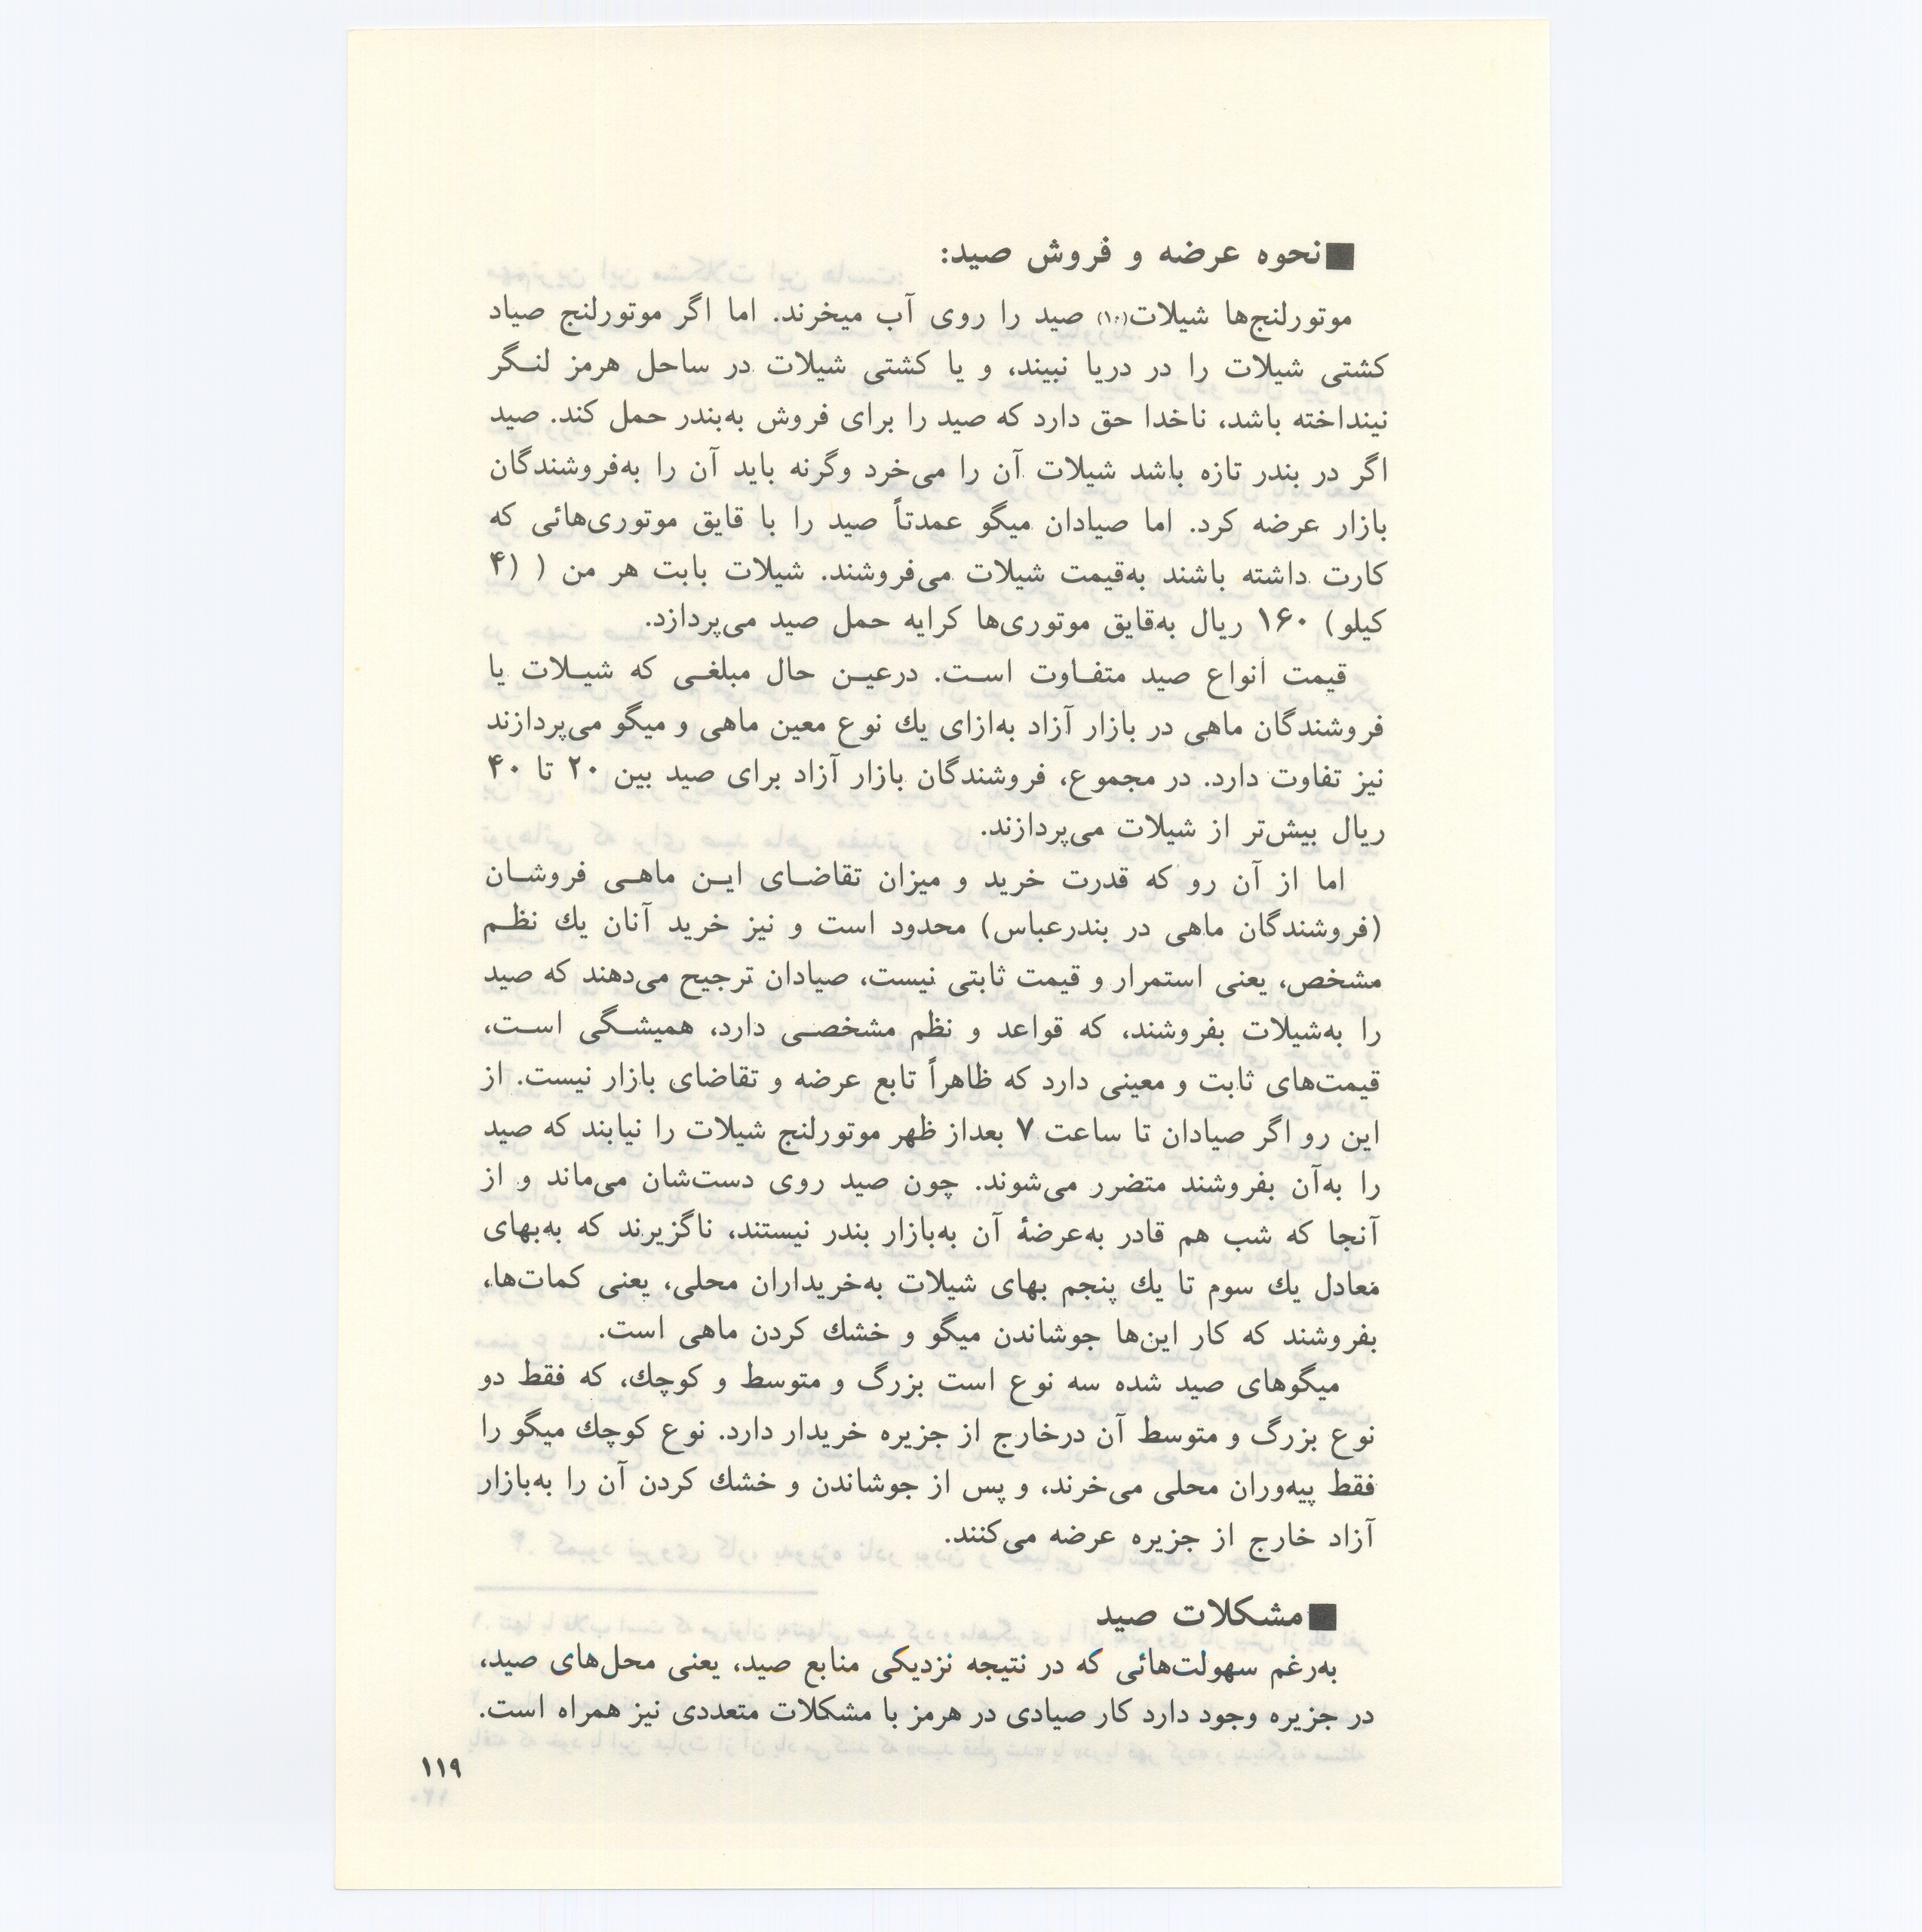 ■نحوه عرضه و فروش صید:
موتورلنج‌ها شیلات(۱۰) صید را روی آب میخرند. اما اگر موتورلنج صیاد
کشتی شیلات را در دریا نبیند، و یا کشتی شیلات در ساحل هرمز لنـگر
نینداخته باشد، ناخدا حق دارد که صید را برای فروش به‌بندر حمل کند. صید
اگر در بندر تازه باشد شیلات آن را می‌خرد وگرنه باید آن را به‌فروشندگان
بازار عرضه کرد. اما صیادان میگو عمدتاً صید را با قایق موتوری‌هائی که
کارت داشته باشند به‌قیمت شیلات می‌فروشند. شیلات بابت هر من ( (۴
کیلو) ۱۶۰ ریال به‌قایق موتوری‌ها کرایه حمل صید می‌پردازد.
قیمت انواع صید متفـاوت اسـت. درعیـن حال مبلغـی که شیـلات یا
فروشندگان ماهی در بازار آزاد به‌ازای یك نوع معین ماهی و میگو می‌پردازند
نیز تفاوت دارد. در مجموع، فروشندگان بازار آزاد برای صید بین ۲۰ تا ۴۰
ریال بیش‌تر از شیلات می‌پردازند.
اما از آن رو که قدرت خرید و میزان تقاضـای ایـن ماهـی فروشـان
(فروشندگان ماهی در بندرعباس) محدود است و نیز خرید آنان یك نظـم
مشخص، یعنی استمرار و قیمت ثابتی نیست، صیادان ترجیح می‌دهند که صید
را به‌شیلات بفروشند، که قواعد و نظم مشخصـی دارد، همیشـگی اسـت،
قیمت‌های ثابت و معینی دارد که ظاهراً تابع عرضه و تقاضای بازار نیست. از
این رو اگر صیادان تا ساعت ۷ بعداز ظهر موتورلنج شیلات را نیابند که صید
را به‌آن بفروشند متضرر می‌شوند. چون صید روی دست‌شان می‌ماند و از
آنجا که شب هم قادر به‌عرضهٔ آن به‌بازار بندر نیستند، ناگزیرند که به‌بهای
معادل یك سوم تا یك پنجم بهای شیلات به‌خریداران محلی، یعنی کمات‌ها،
بفروشند که کار این‌ها جوشاندن میگو و خشك کردن ماهی است.
میگوهای صید شده سه نوع است بزرگ و متوسط و کوچك، که فقط دو
نوع بزرگ و متوسط آن درخارج از جزیره خریدار دارد. نوع کوچك میگو را
فقط پیه‌وران محلی می‌خرند، و پس از جوشاندن و خشك کردن آن را به‌بازار
آزاد خارج از جزیره عرضه می‌کنند.
■مشکلات صید
به‌رغم سهولت‌هائی که در نتیجه نزدیکی منابع صید، یعنی محل‌های صید،
در جزیره وجود دارد کار صیادی در هرمز با مشکلات متعددی نیز همراه است.
۱۱۹